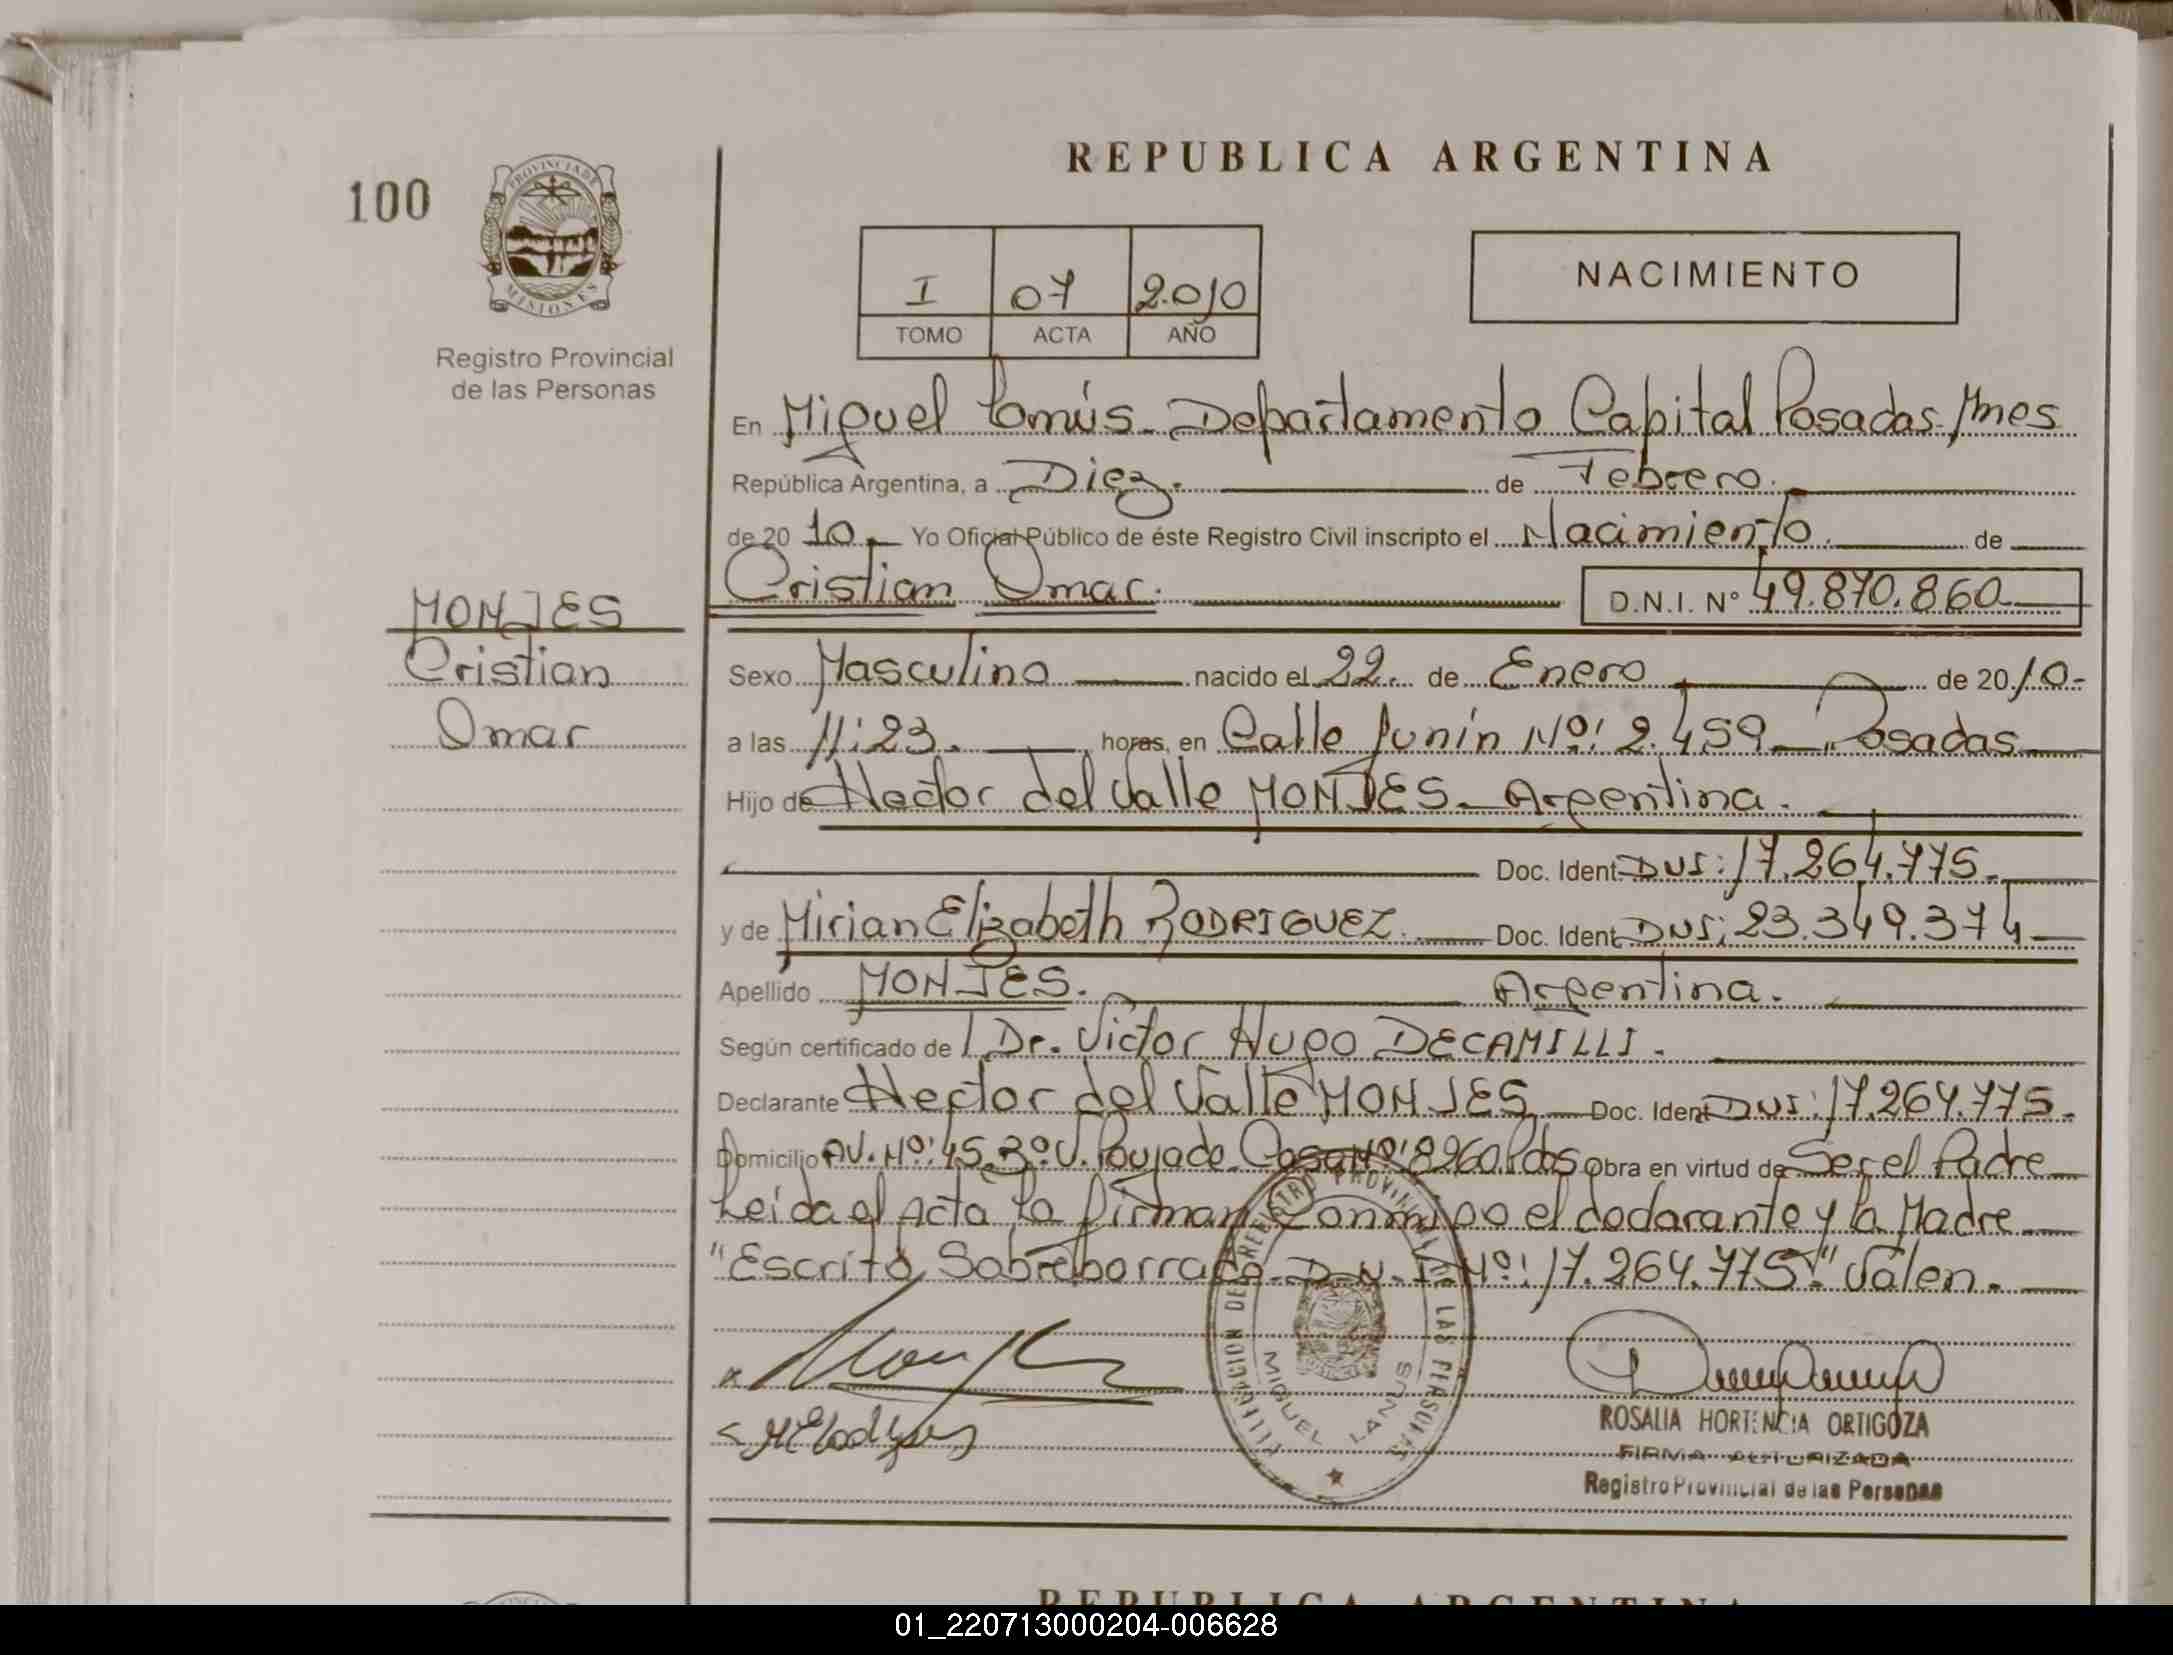 REPUBLICA ARGENTINA
100
PROVINCIA DE
MISIONES
Registro Provincial
de las Personas
I 07 2.010
TOMO ACTA AÑO
NACIMIENTO
En Miguel Lanús. Departamento Capital Posadas Mnes
República Argentina, a Diez. de Febrero.
de 2010 Yo Oficial Público de éste Registro Civil inscripto el Nacimiento. de
Cristian Omar. D.N.I. Nº 49.870.860
MONJES
Cristian
Omar
Sexo Masculino nacido el 22. de Enero de 2010.-
a las 11:23. horas, en Calle Junín Nº: 2.459 Posadas
Hijo de Hector del Valle MONJES. Argentina.
Doc. Ident. DNI: 17.264.775.
y de Mirian Elizabeth RODRIGUEZ. Doc. Ident. DNI: 23.349.374
Apellido MONJES. Argentina.
Según certificado de Dr. Victor Hugo DECAMILLI.
Declarante Hector del Valle MONJES Doc. Ident. DNI: 17.264.775.
Domicilio AV. Nº: 45. Bº V. Poujade Casa Nº: 8960 Pdas Obra en virtud de Ser el Padre
Leida el Acta la firman Conmigo el declarante y la Madre
"Escrito Sobreborrado D.N.I Nº: 17.264.775." Valen.
DELEGACION DE REGISTRO PROVINCIAL DE LAS PERSONAS
MIGUEL LANUS
ROSALIA HORTENCIA ORTIGOZA
FIRMA AUTORIZADA
Registro Provincial de las Personas
REPUBLICA ARGENTINA
01_220713000204-006628